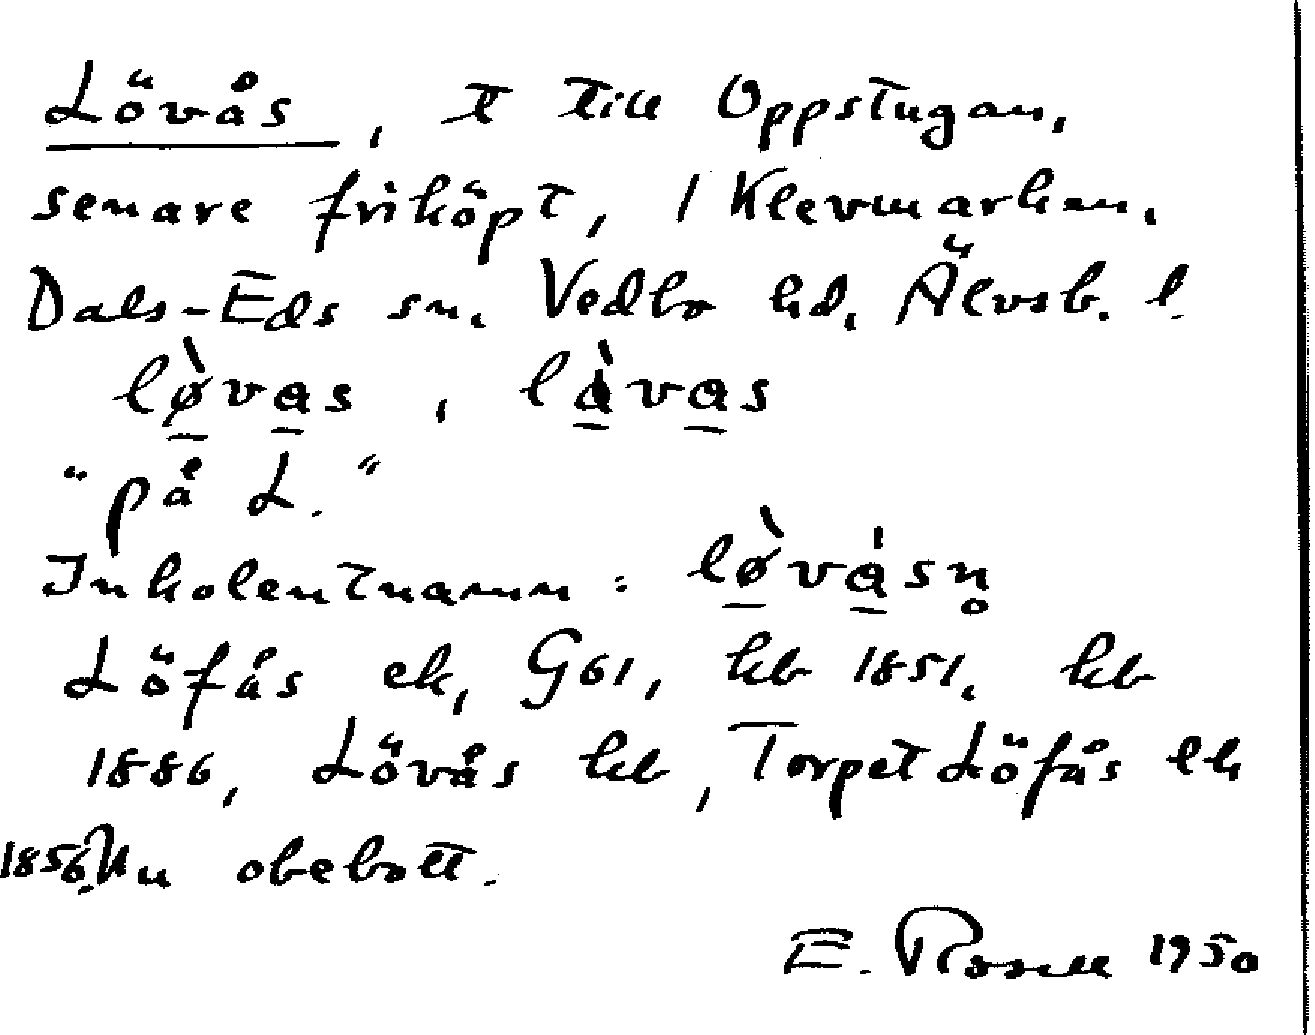 Lövås, t till Oppstugan,
senare friköpt, 1 Klevmarken,
Dals-Eds sn. Vedbo hd, Älvsb. l.
lø̀vas, là̀vas
"på L."
Inkolentnamn: lø̀vásn̥
Löfås ek, G61, kb 1851, kb
1886, Lövås kb, Torpet Löfås lh
1856. Nu obebott.
E. Rosell 1950